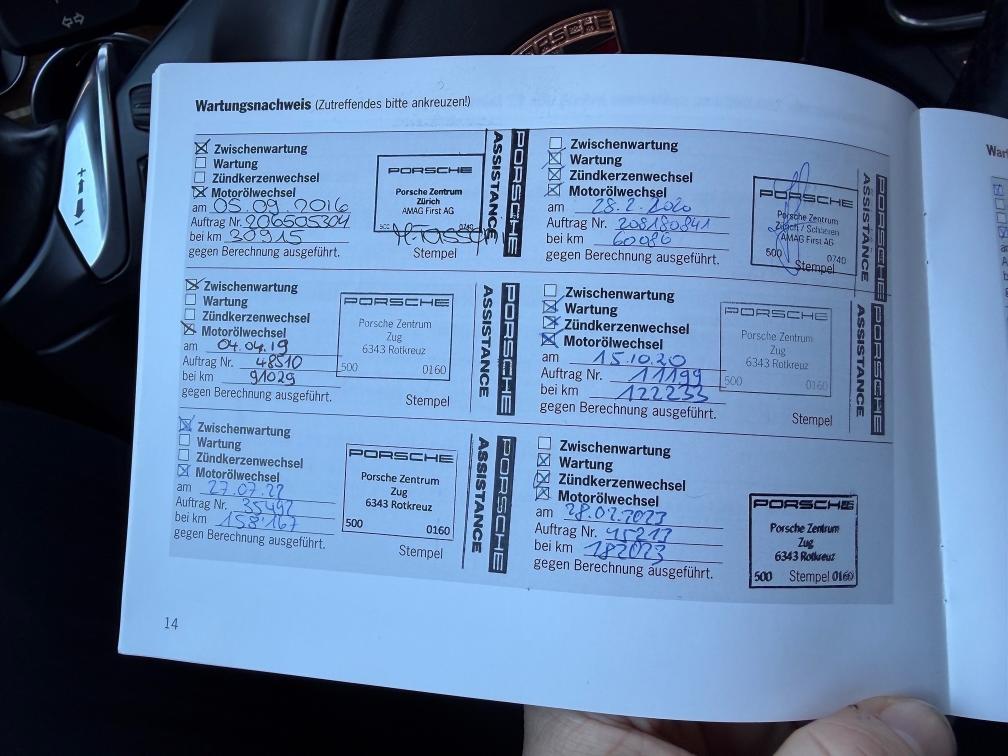 PORSCHE
Wartungsnachweis (Zutreffendes bitte ankreuzen!)
Zwischenwartung
Wartung
Zündkerzenwechsel
Motorölwechsel
am 05.09.2016
Auftrag Nr. 206505304
bei km 30915
gegen Berechnung ausgeführt.
PORSCHE
Porsche Zentrum
Zürich
AMAG First AG
500 0740
Stempel
PORSCHE
ASSISTANCE
Zwischenwartung
Wartung
Zündkerzenwechsel
Motorölwechsel
am 28.2.
Auftrag Nr. 208180841
bei km 60086
gegen Berechnung ausgeführt.
PORSCHE
Porsche Zentrum
Zürich / Schlieren
AMAG First AG
500 0740
Stempel
PORSCHE
ASSISTANCE
Zwischenwartung
Wartung
Zündkerzenwechsel
Motorölwechsel
am 04.04.19
Auftrag Nr. 48510
bei km 91029
gegen Berechnung ausgeführt.
PORSCHE
Porsche Zentrum
Zug
6343 Rotkreuz
500 0160
Stempel
PORSCHE
ASSISTANCE
Zwischenwartung
Wartung
Zündkerzenwechsel
Motorölwechsel
am 15.10.20
Auftrag Nr. 11199
bei km 122233
gegen Berechnung ausgeführt.
PORSCHE
Porsche Zentrum
Zug
6343 Rotkreuz
500 0160
Stempel
PORSCHE
ASSISTANCE
Zwischenwartung
Wartung
Zündkerzenwechsel
Motorölwechsel
am 27.07.22
Auftrag Nr. 35492
bei km 158'167
gegen Berechnung ausgeführt.
PORSCHE
Porsche Zentrum
Zug
6343 Rotkreuz
500 0160
Stempel
PORSCHE
ASSISTANCE
Zwischenwartung
Wartung
Zündkerzenwechsel
Motorölwechsel
am 28.02.2023
Auftrag Nr. 45213
bei km 182023
gegen Berechnung ausgeführt.
PORSCHE
Porsche Zentrum
Zug
6343 Rotkreuz
500 Stempel 0160
14